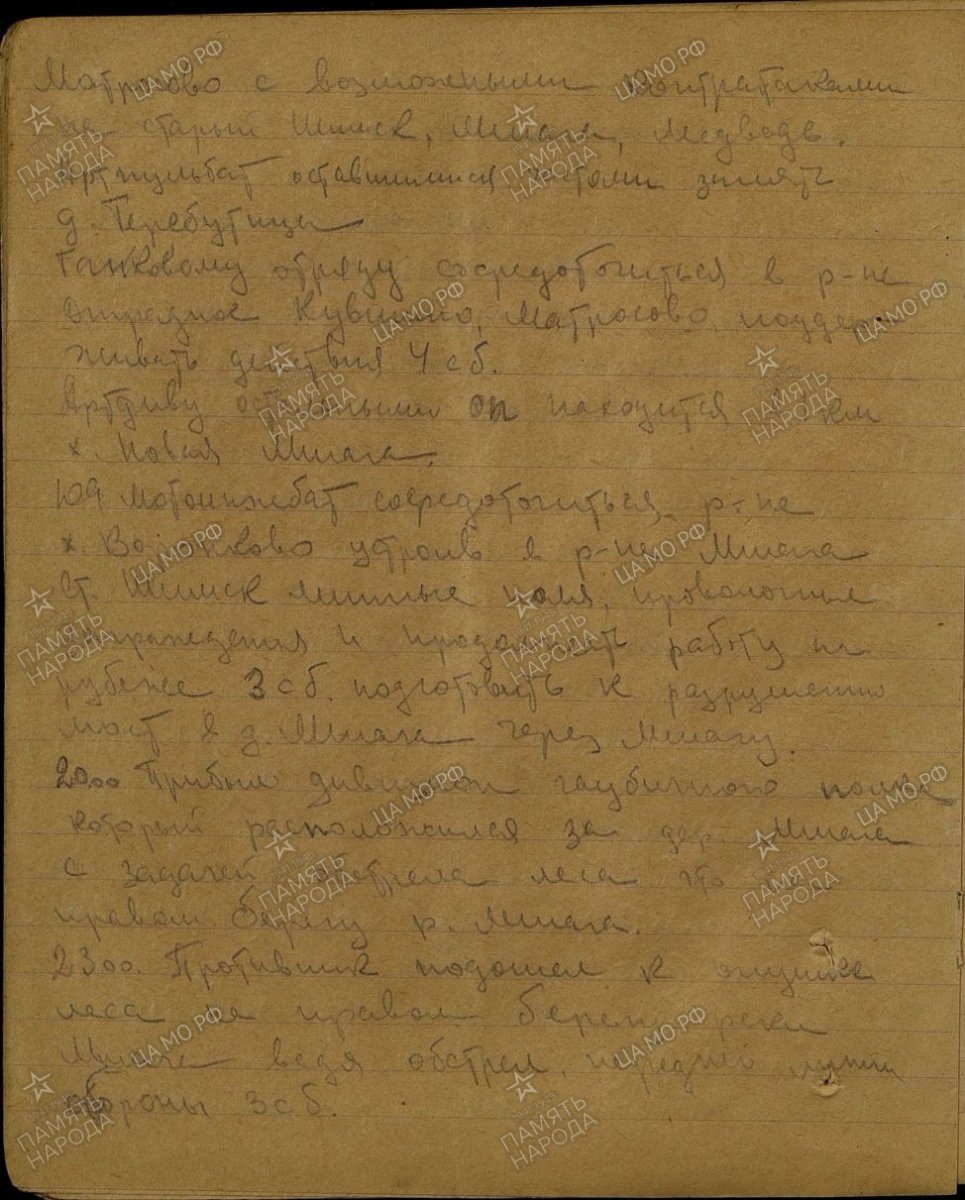 Матросово с возможными контратаками
на старый Шимск, Мшага, Медведь.
Артпульбат оставшимися ротами занять
д. Теребутицы
Танковому отряду сосредоточиться в р-не
Отрадное Кувшино, Матросово, поддер-
живать действия 4 сб.
Артдиву остальными оп находится
х. Новая Мшага.
109 мотоинжбат сосредоточиться р-не
х. Воронково устроив в р-не Мшага
Ст. Шимск минные поля, проволочные
заграждения и продолжать работу на
рубеже 3 сб. подготовить к разрушению
мост в д. Мшага через Мшагу.
20 00 Прибыл дивизион гаубичного полка
который расположился за дер. Мшага
с задачей обстрела леса что на
правом берегу р. Мшага.
23 00. Противник подошел к опушке
леса на правом берегу реки
Мшага ведя обстрел передней линии
обороны 3 сб.
ПАМЯТЬ НАРОДА
ЦАМО.РФ